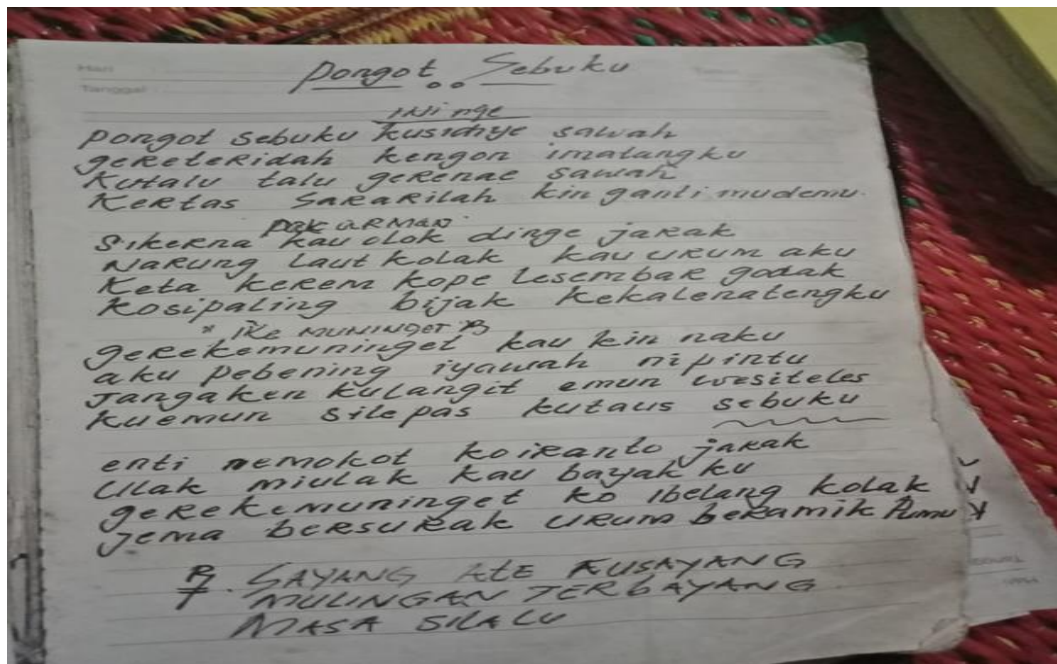 Hari
Tanggal :
Pongot Sebuku
ini nge
Pongot Sebuku kusidnye sawah
gereteridah kengon imatangku
Kutalu talu gerenae sawah
Kertas Sararilah kin ganti mudemu.
PAK URMAN
Sikerna kau olok dinge jarak
Narung laut kolak kau urum aku
Keta kerem kope lesembar godak
Kosipaling bijak kekalenatengku
" ike muninget
gerekemuninget kau kin naku
aku pebening iyawah nipintu
Jangaken kulangit emun wesiteles
kuemun silepas kutaus sebuku
enti nemokot koiranto jarak
Ulak miulak kau bayak ku
gerekemuninget ko ibelang kolak
Jema bersurak urum beramik Pumu
SAYANG ATE KUSAYANG
MULINGAN TERBAYANG
MASA SILALU